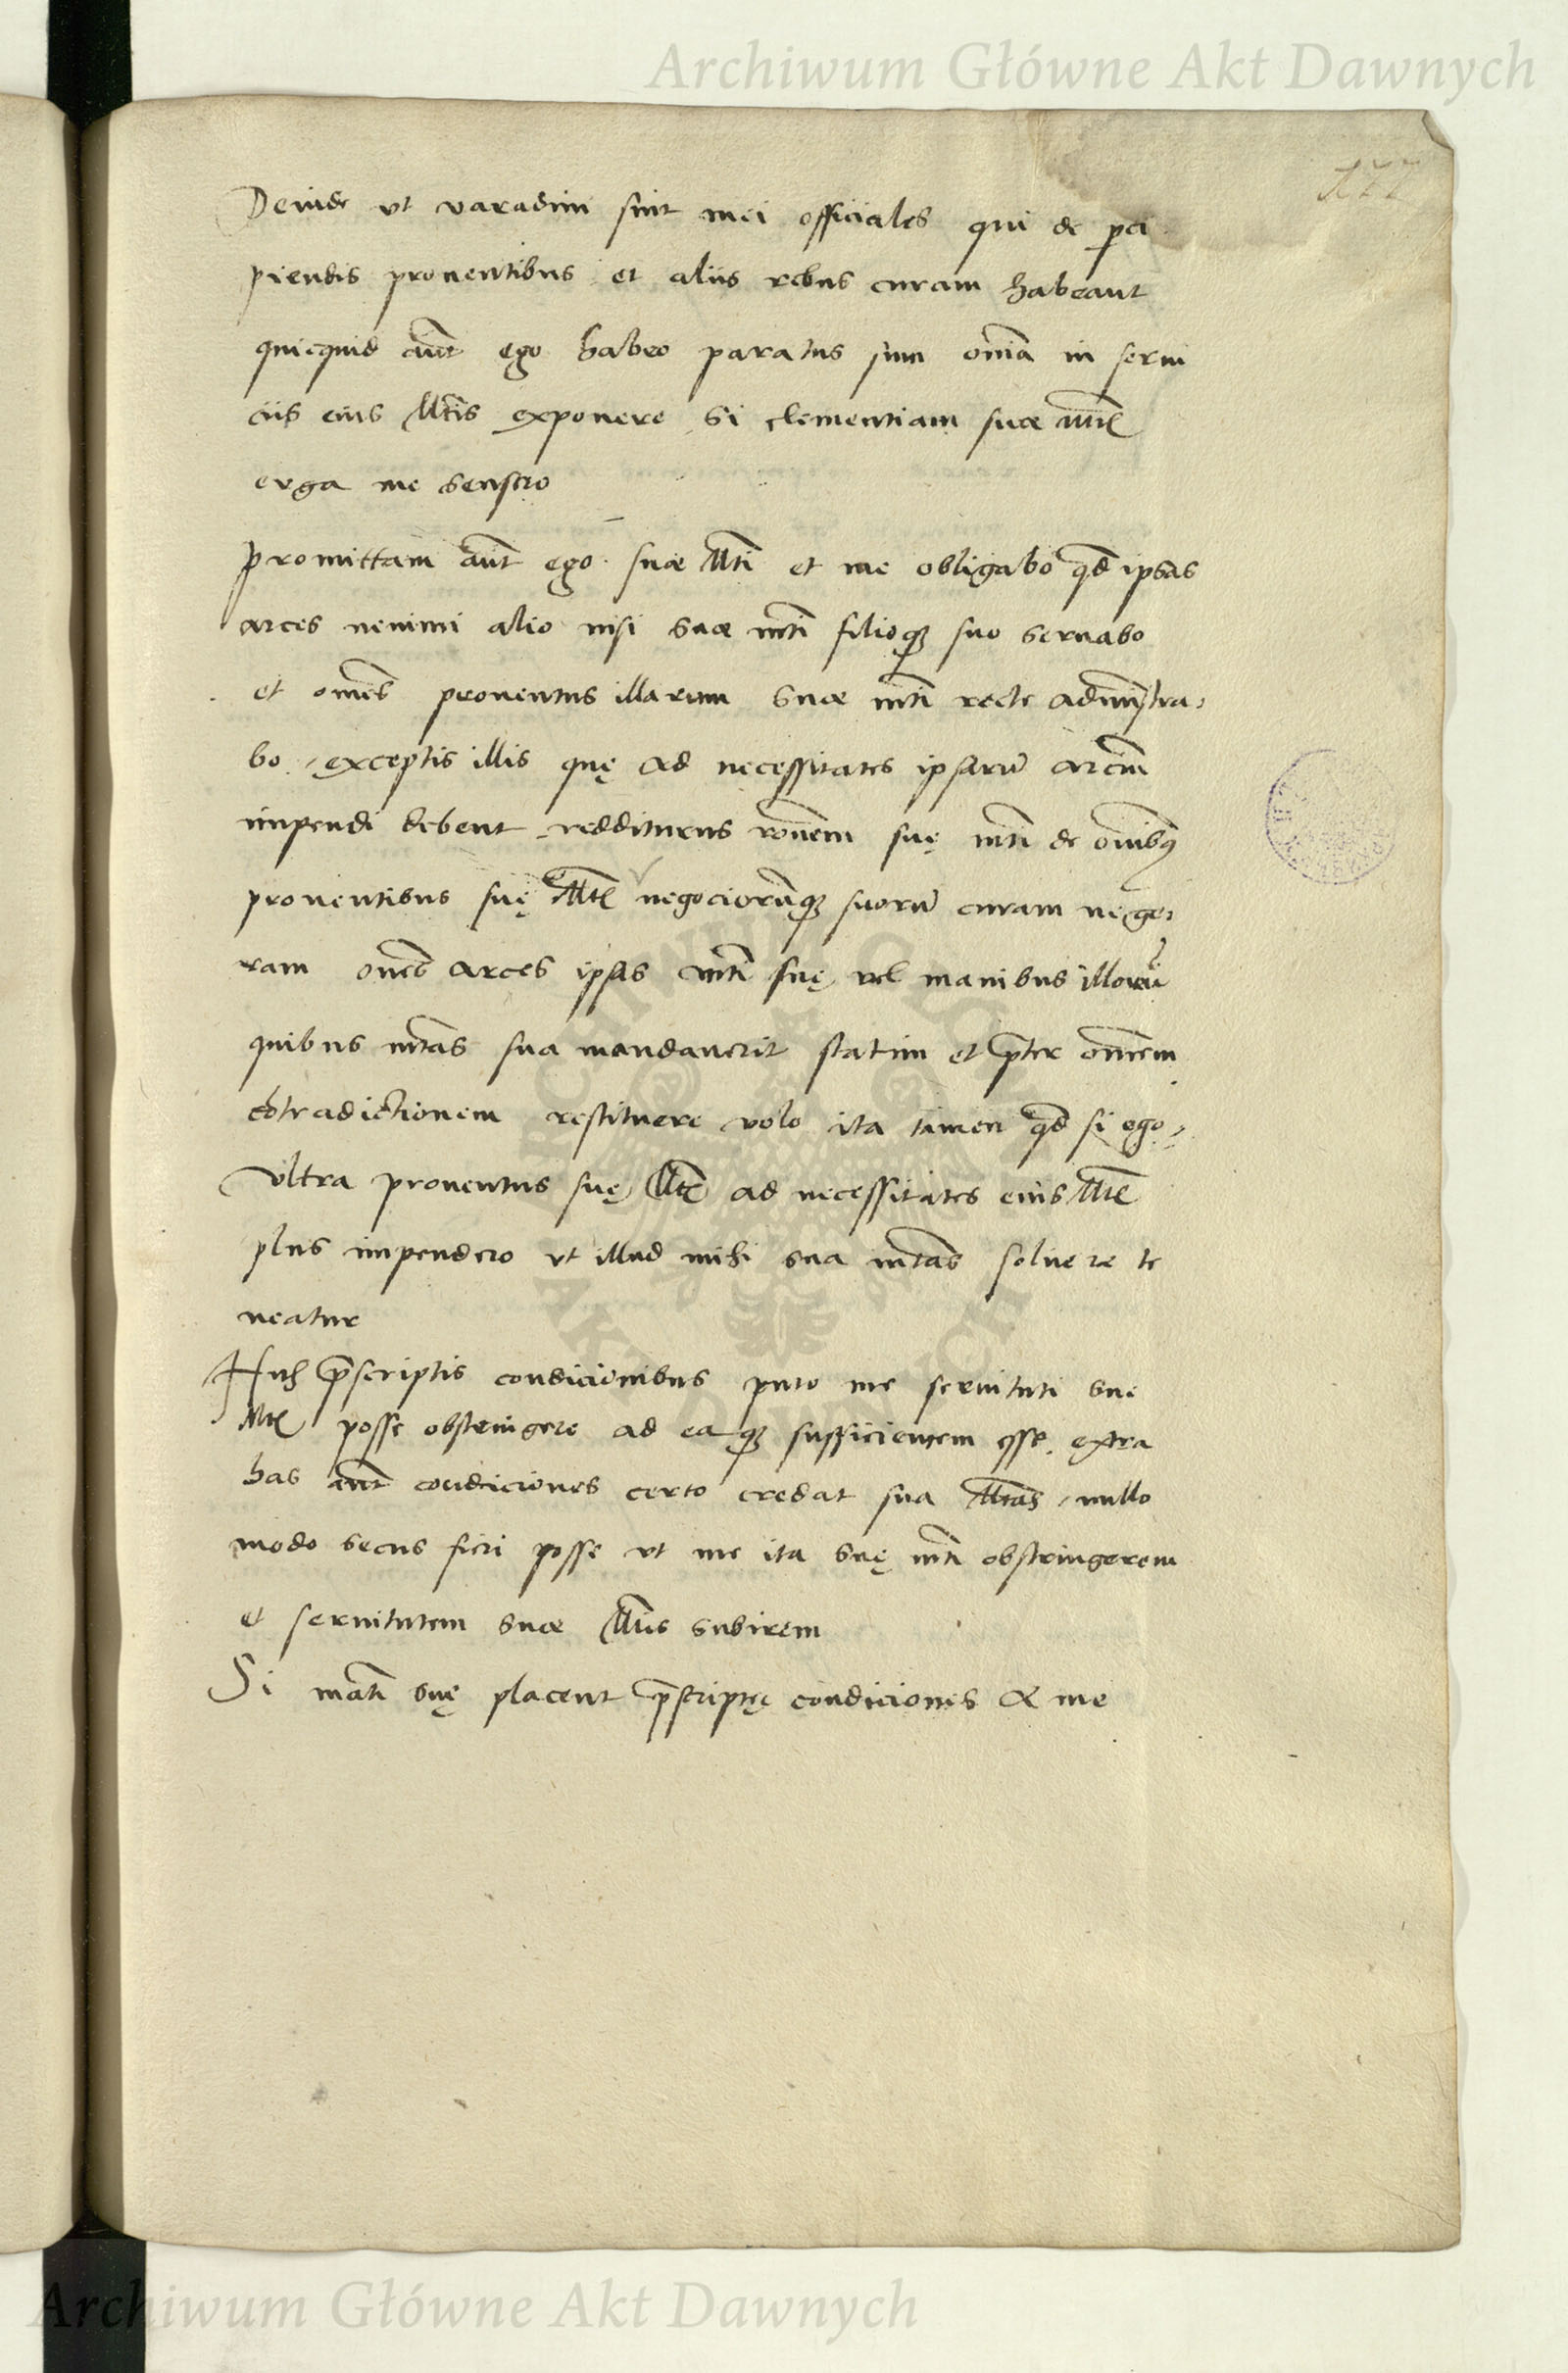 Archiwum Główne Akt Dawnych
Deinde vt varadini sint mei officiales qui de perci
piendis prouentibus et aliis rebus curam habeant
quicquid aūt ego habeo paratus sum om̄ia in serui
ciis eius Mt̄is exponere si clementiam suae Mt̄is
erga me sensero
promittam aūt ego suae Mt̄i et me obligabo qd̄ ipsas
arces nemini alio nisi suae mt̄i filioq3 suo seruabo
et om̄es prouentus illarum suae mt̄i recte administra,
bo, exceptis illis quę ad necessitates ipsarū arcium
impendi debent redditurus rōnem suę mt̄i de om̄ibq
prouentibus suę Mt̄is negociorūq3 suorū curam
ram om̄es arces ipsas mt̄i suę vel manibus illorū
quibus mt̄as sua mandauerit statim et p̄ter om̄em
cōtradictionem restituere volo ita tamen qd̄ si ego
vltra prouentus suę Mt̄is ad necessitates eius Mt̄is
plus impendero vt illud mihi sua mt̄as soluere te
neatur
p̄scriptis condicionibus puto me seruituti sue
Mt̄is posse obstringere ad eaq3 sufficientem esse. extra
has aūt condiciones certo credat sua Mt̄as, nullo
modo secus fieri posse vt me ita suę mt̄i obstringerem
et seruitutem suae Mt̄is subirem
Si mati suę placent p̄scriptę condiciones & me
Archiwum Główne Akt Dawnych